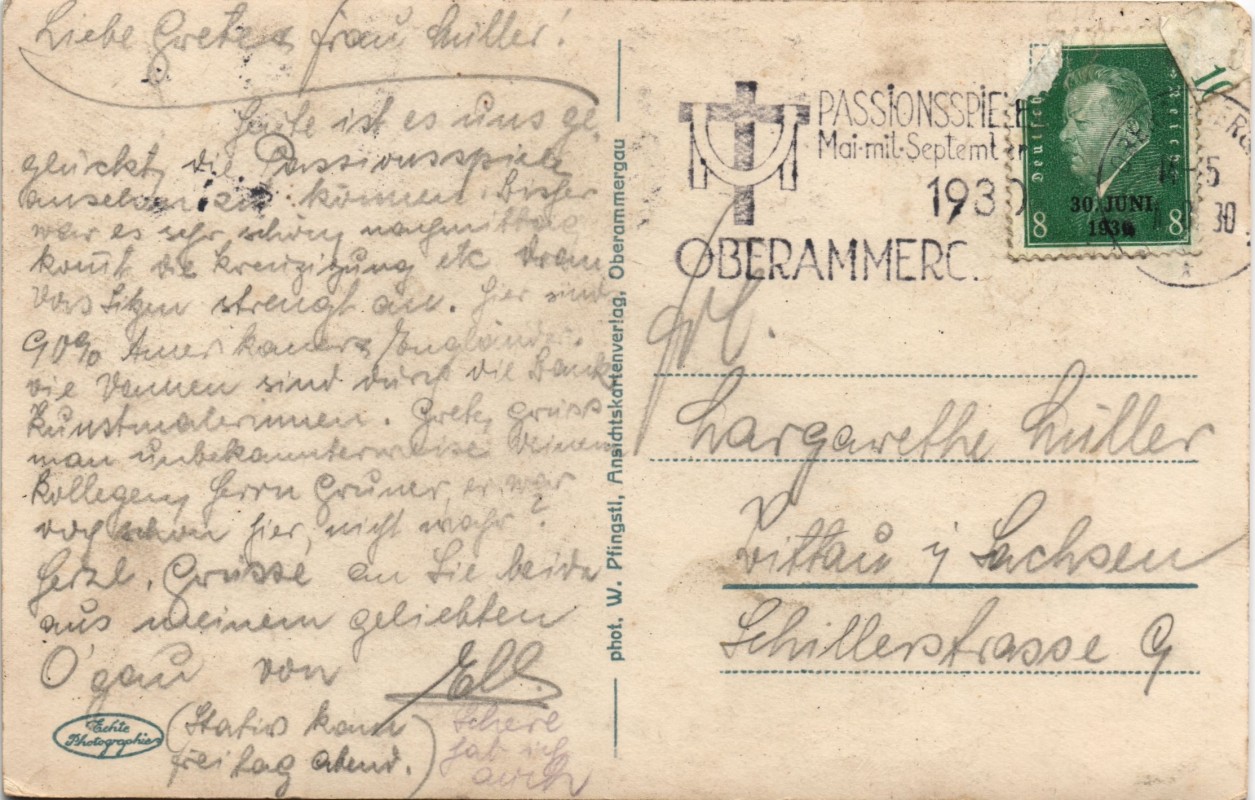 Liebe Grete, Frau Müller!
Heute ist es uns ge-
glückt, die Passionsspiele
anschauen zu können. Bisher
war es sehr schön, nachmittag
kommt die Kreuzigung etc dran
Das Sitzen strengt an. Hier sind
90% Amerikaner, Engländer.
die Damen sind durch die Bank
Kunstmalerinnen. Grete, grüss
man unbekannterweise Deinen
Kollegen, Herrn Gruner, er war
doch schon hier, nicht wahr?
Herzl. Grüsse an Sie beide
aus meinem geliebten
O'gau von Ell.
(Stativ kann
Freitag abend.)
Schere
hab ich
auch
Echte
Photographie
phot. W. Pfingstl, Ansichtskartenverlag, Oberammergau
PASSIONSSPIELE
Mai-mit-September
1930
OBERAMMERG.
Deutsches Reich
30. JUNI
1930
8 8
10
30
Frl.
Margarethe Müller
Zittau i/Sachsen
Schillerstrasse 9